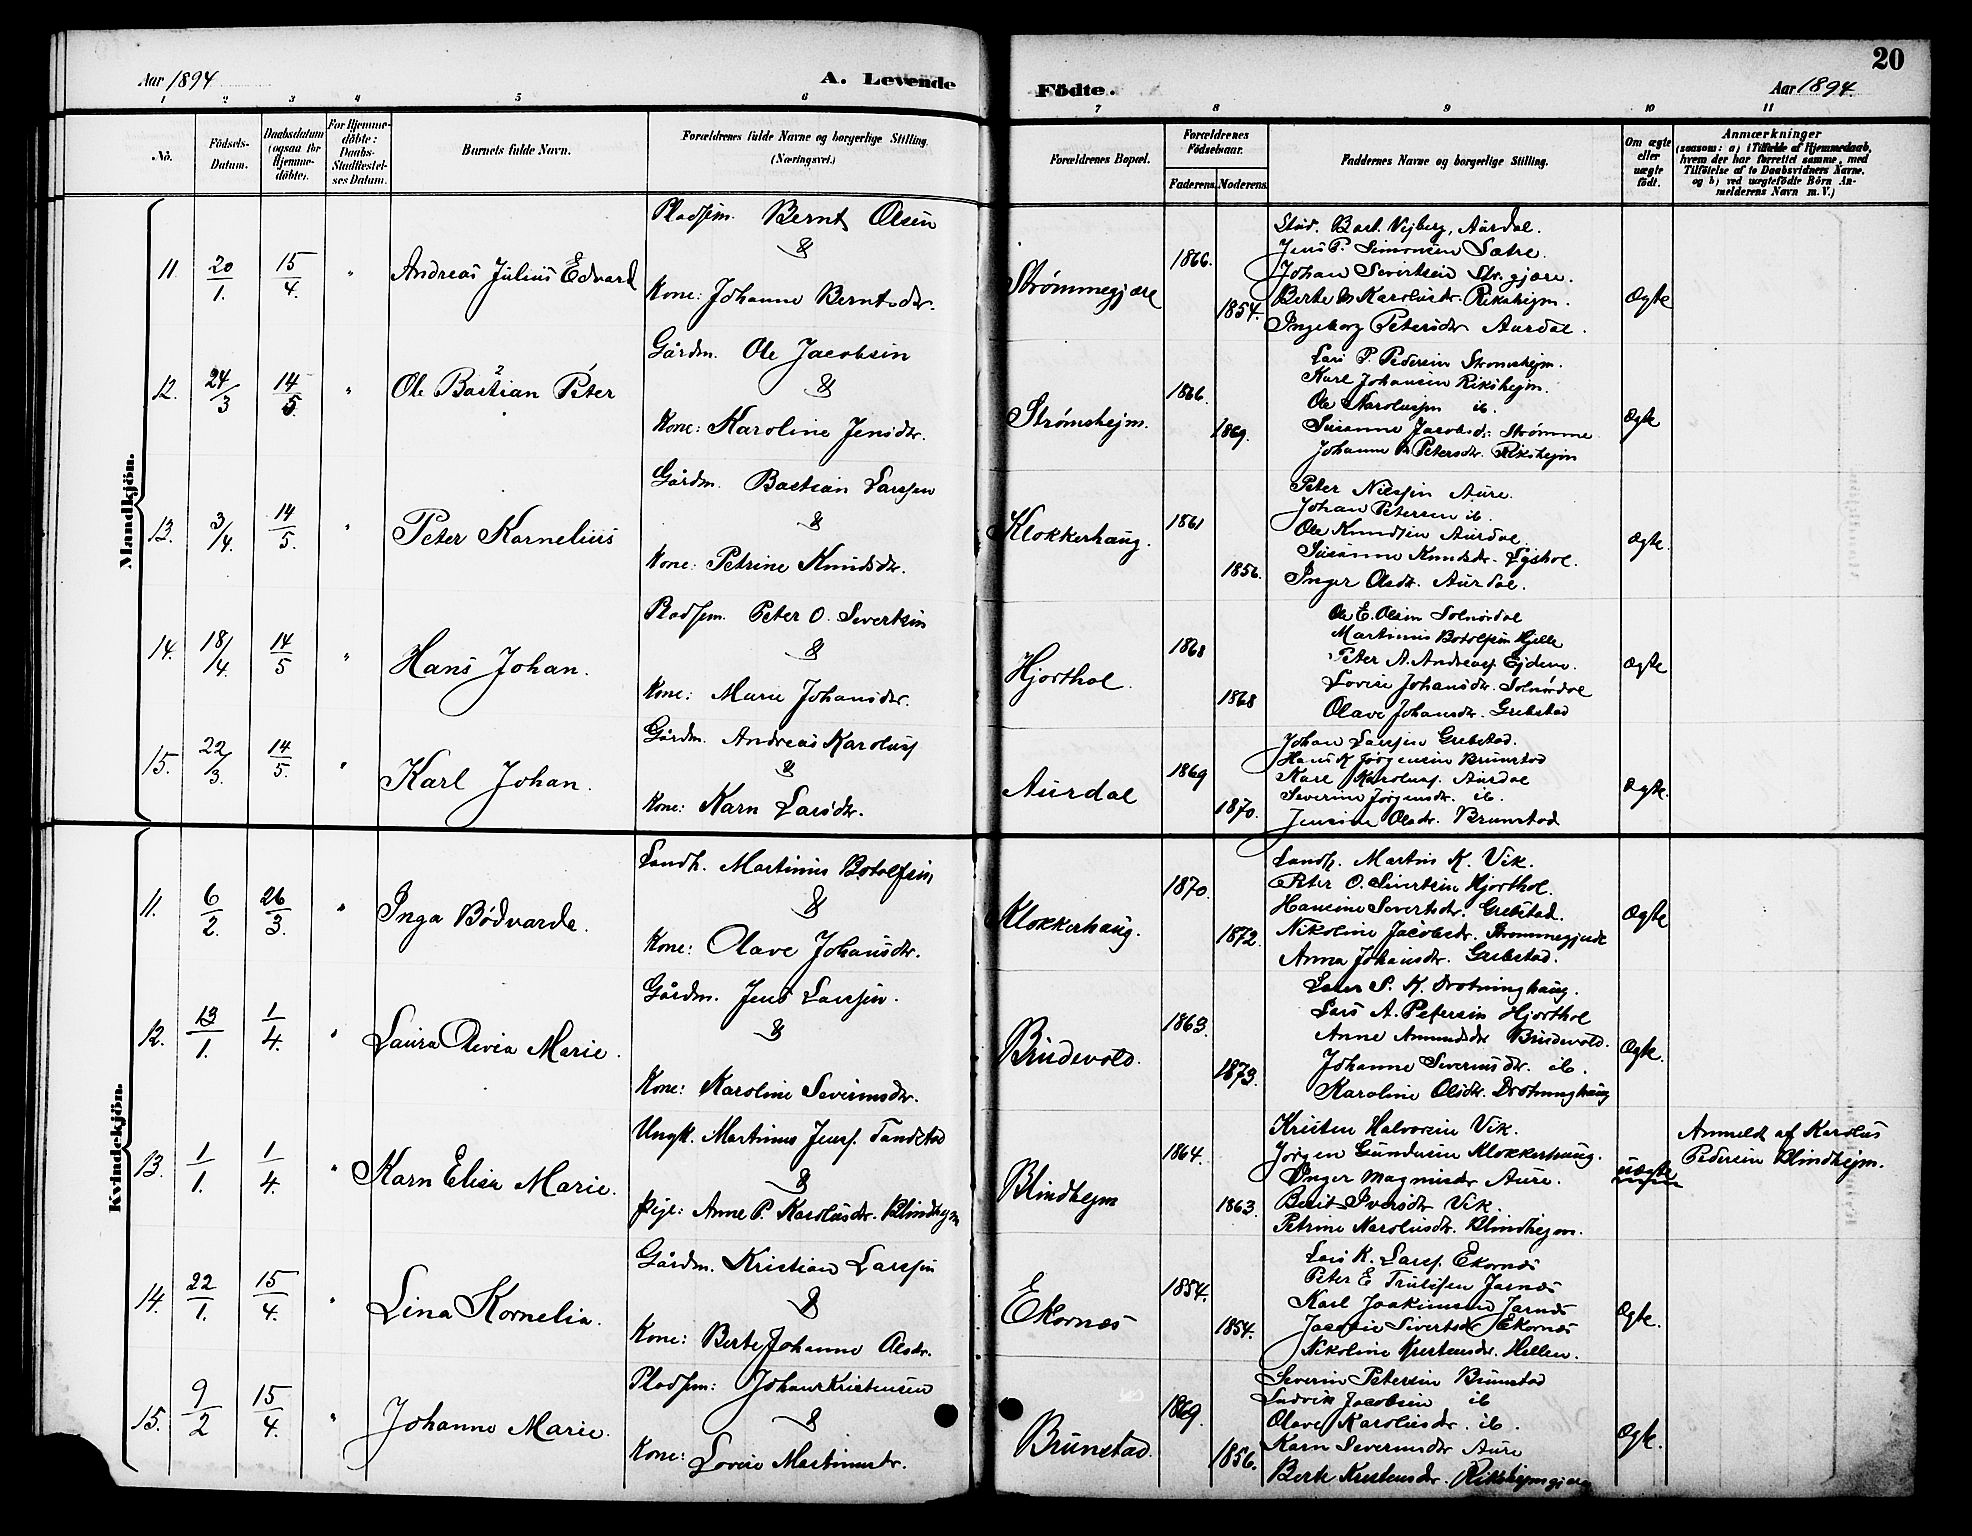 20
Aar 1894
A. Levende
Födte.
Aar 1894.
1 2 3 4 5 6 7 8 9 10 11
No.
Födsels-
Datum.
Daabsdatum
(ogsaa for
Hjemme-
döbte).
For Hjemme-
döbte:
Daabs-
Stadfestel-
ses Datum.
Barnets fulde Navn.
Forældrenes fulde Navne og borgerlige Stilling.
(Næringsvei.)
Forældrenes Bopæl.
Forældrenes
Födselsaar.
Faderens. Moderens.
Faddernes Navne og borgerlige Stilling.
Om ægte
eller
uægte
födt.
Anmærkninger
(saasom: a) i Tilfælde af Hjemmedaab,
hvem der har forrettet samme, med
Tilföielse af to Daabsvidners Navne.
og b) ved uægtefödte Börn An-
melderens Navn m. V.)
Mandkjön.
11. 20/1. 15/4. " Andreas Julius Edvard
Pladsm. Bernt Olsen
&
Kone: Johanne Berntsdr.
Strømmegjære
1866.
1854.
Stud. Bast. Vejberg, Aurdal.
Jens P. Simonsen Sætre.
Johan Sivertsen Str.gjære.
Berte M Karolusdr. Rikshejm.
Ingeborg Petersdr Aurdal.
Ægte
12. 24/3 14/5. " Ole Bastian Peter
Gårdm. Ole Jacobsen
&
Kone: Karoline Jensdr.
Strømshejm.
1866.
1869.
Lars P. Pedersen Stromshejm.
Karl Johansen Rikshejm.
Ole Karolussen ib.
Susanne Jacobsd: Strømme
Johanne P. Petersdr. Rikshejm
Ægte
13. 3/4. 14/5. " Peter Kornelius
Gårdm. Bastian Larssen
&
Kone: Petrine Knudsdr.
Klokkerhaug.
1861
1856.
Peter Nilssen Aure.
Johan Petersen ib.
Ole Knudsen Aurdal.
Susanne Knudsdr.
Inger Olsdr. Aurdal.
Ægte.
14. 18/4. 14/5 " Hans Johan.
Pladsm. Peter O. Severtsen
&
Kone: Marie Johansdr.
Hjorthol.
1868
1868
Ole E. Olsen Solnørdal
Martinus Botolfsen Hjelle
Peter A. Andreass. Ejdem.
Lovise Johansdr. Solnørdal
Olave Johansdr. Grebstad
Ægte
15. 22/3. 14/5. " Karl Johan.
Gårdm. Andreas Karoluss
&
Kone: Karn Larsdr.
Aurdal
1869
1870.
Johan Larssen Grebstad.
Hans K Jørgensen Brunstad
Karl Karoluss. Aurdal
Severine Jørgensdr. ib.
Jensine Olsdr. Brunstad
Ægte.
Kvindekjön.
11. 6/2. 26/3. " Inga Bødvarde.
Landh. Martinus Botolfsen
&
Kone: Olave Johansdr.
Klokkerhaug.
1870.
1872.
Landh. Martin K. Vik.
Peter O. Sivertsen Hjorthol.
Hansine Severtsdr. Grebstad.
Nikoline Jacobsdr. Strommegjære
Anna Johansdr. Grebstad.
Ægte
12. 13/1. 1/4. " Laura Olivia Marie.
Gårdm. Jens Larssen.
&
Kone: Karoline Severinsdr.
Brudevold.
1863.
1873.
S. K. Drotninghaug.
Lars A. Petersen Hjorthol
Anne Amundsdr Brudevold.
Johanne Severinsdr. ib.
Karoline Olsdr. Drotninghaug
Ægte.
13. 1/1. 1/4. " Karn Elisa Marie.
Ungk. Martinus Jenss. Tandstad
&
Pige: Anne P. Karolusdr. Blindhejm
Blindhejm
1864.
1863.
Kristen Halvorsen Vik.
Jørgen Gundersen Klokkerhaug.
Inger Magnusdr Aure.
Berit Iversdr Vik.
Petrine Karolusdr. Blindhejm.
uægte
Anmeldt af Karolus
Pedersen Blindhejm.
14. 22/1. 15/4. " Lina Kornelia.
Gårdm. Kristian Larssen
&
Kone: Berte Johanne Olsdr.
Ekornæs
1854.
1854.
Lars K. Larss. Ekornæs
Peter E Trulssen Jarnæs
Karl Joakimsen Jarnæs
Jacobie Sivertsdr Ekornæs
Nikoline Kristensdr. Hellen.
Ægte.
15. 9/2 15/4. " Johanne Marie.
Pladsm: Johan Kristensen
&
Kone: Lovise Martinusdr.
Brunstad.
1869.
1856.
Severin Petersen Brunstad
Ludvik Jacobsen ib
Olave Karolusdr. ib.
Karn Severinsdr Aure
Berte Kristensdr. Rikshejmgjære
Ægte.